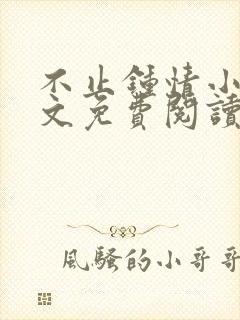 不止鍾情小
文免費閱讀
風騷的小哥哥